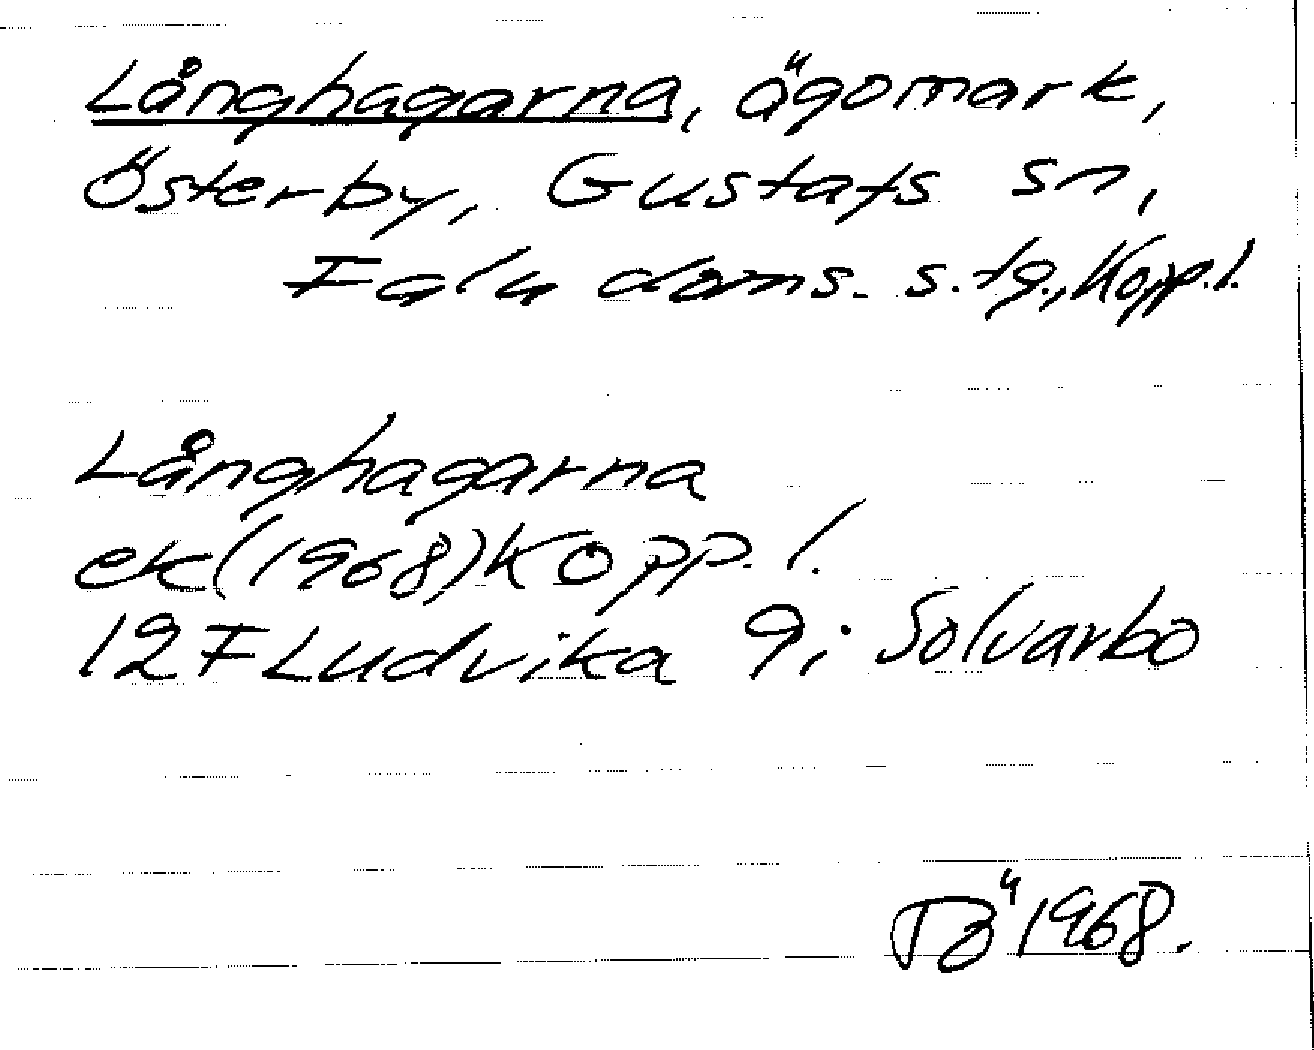 Långhagarna, ägomark,
Österby, Gustafs sn,
Falu doms. s. tg., Kopp. l.
Långhagarna
ek (1968) Kopp. l.
12 F Ludvika 9 i Solvarbo
1968.